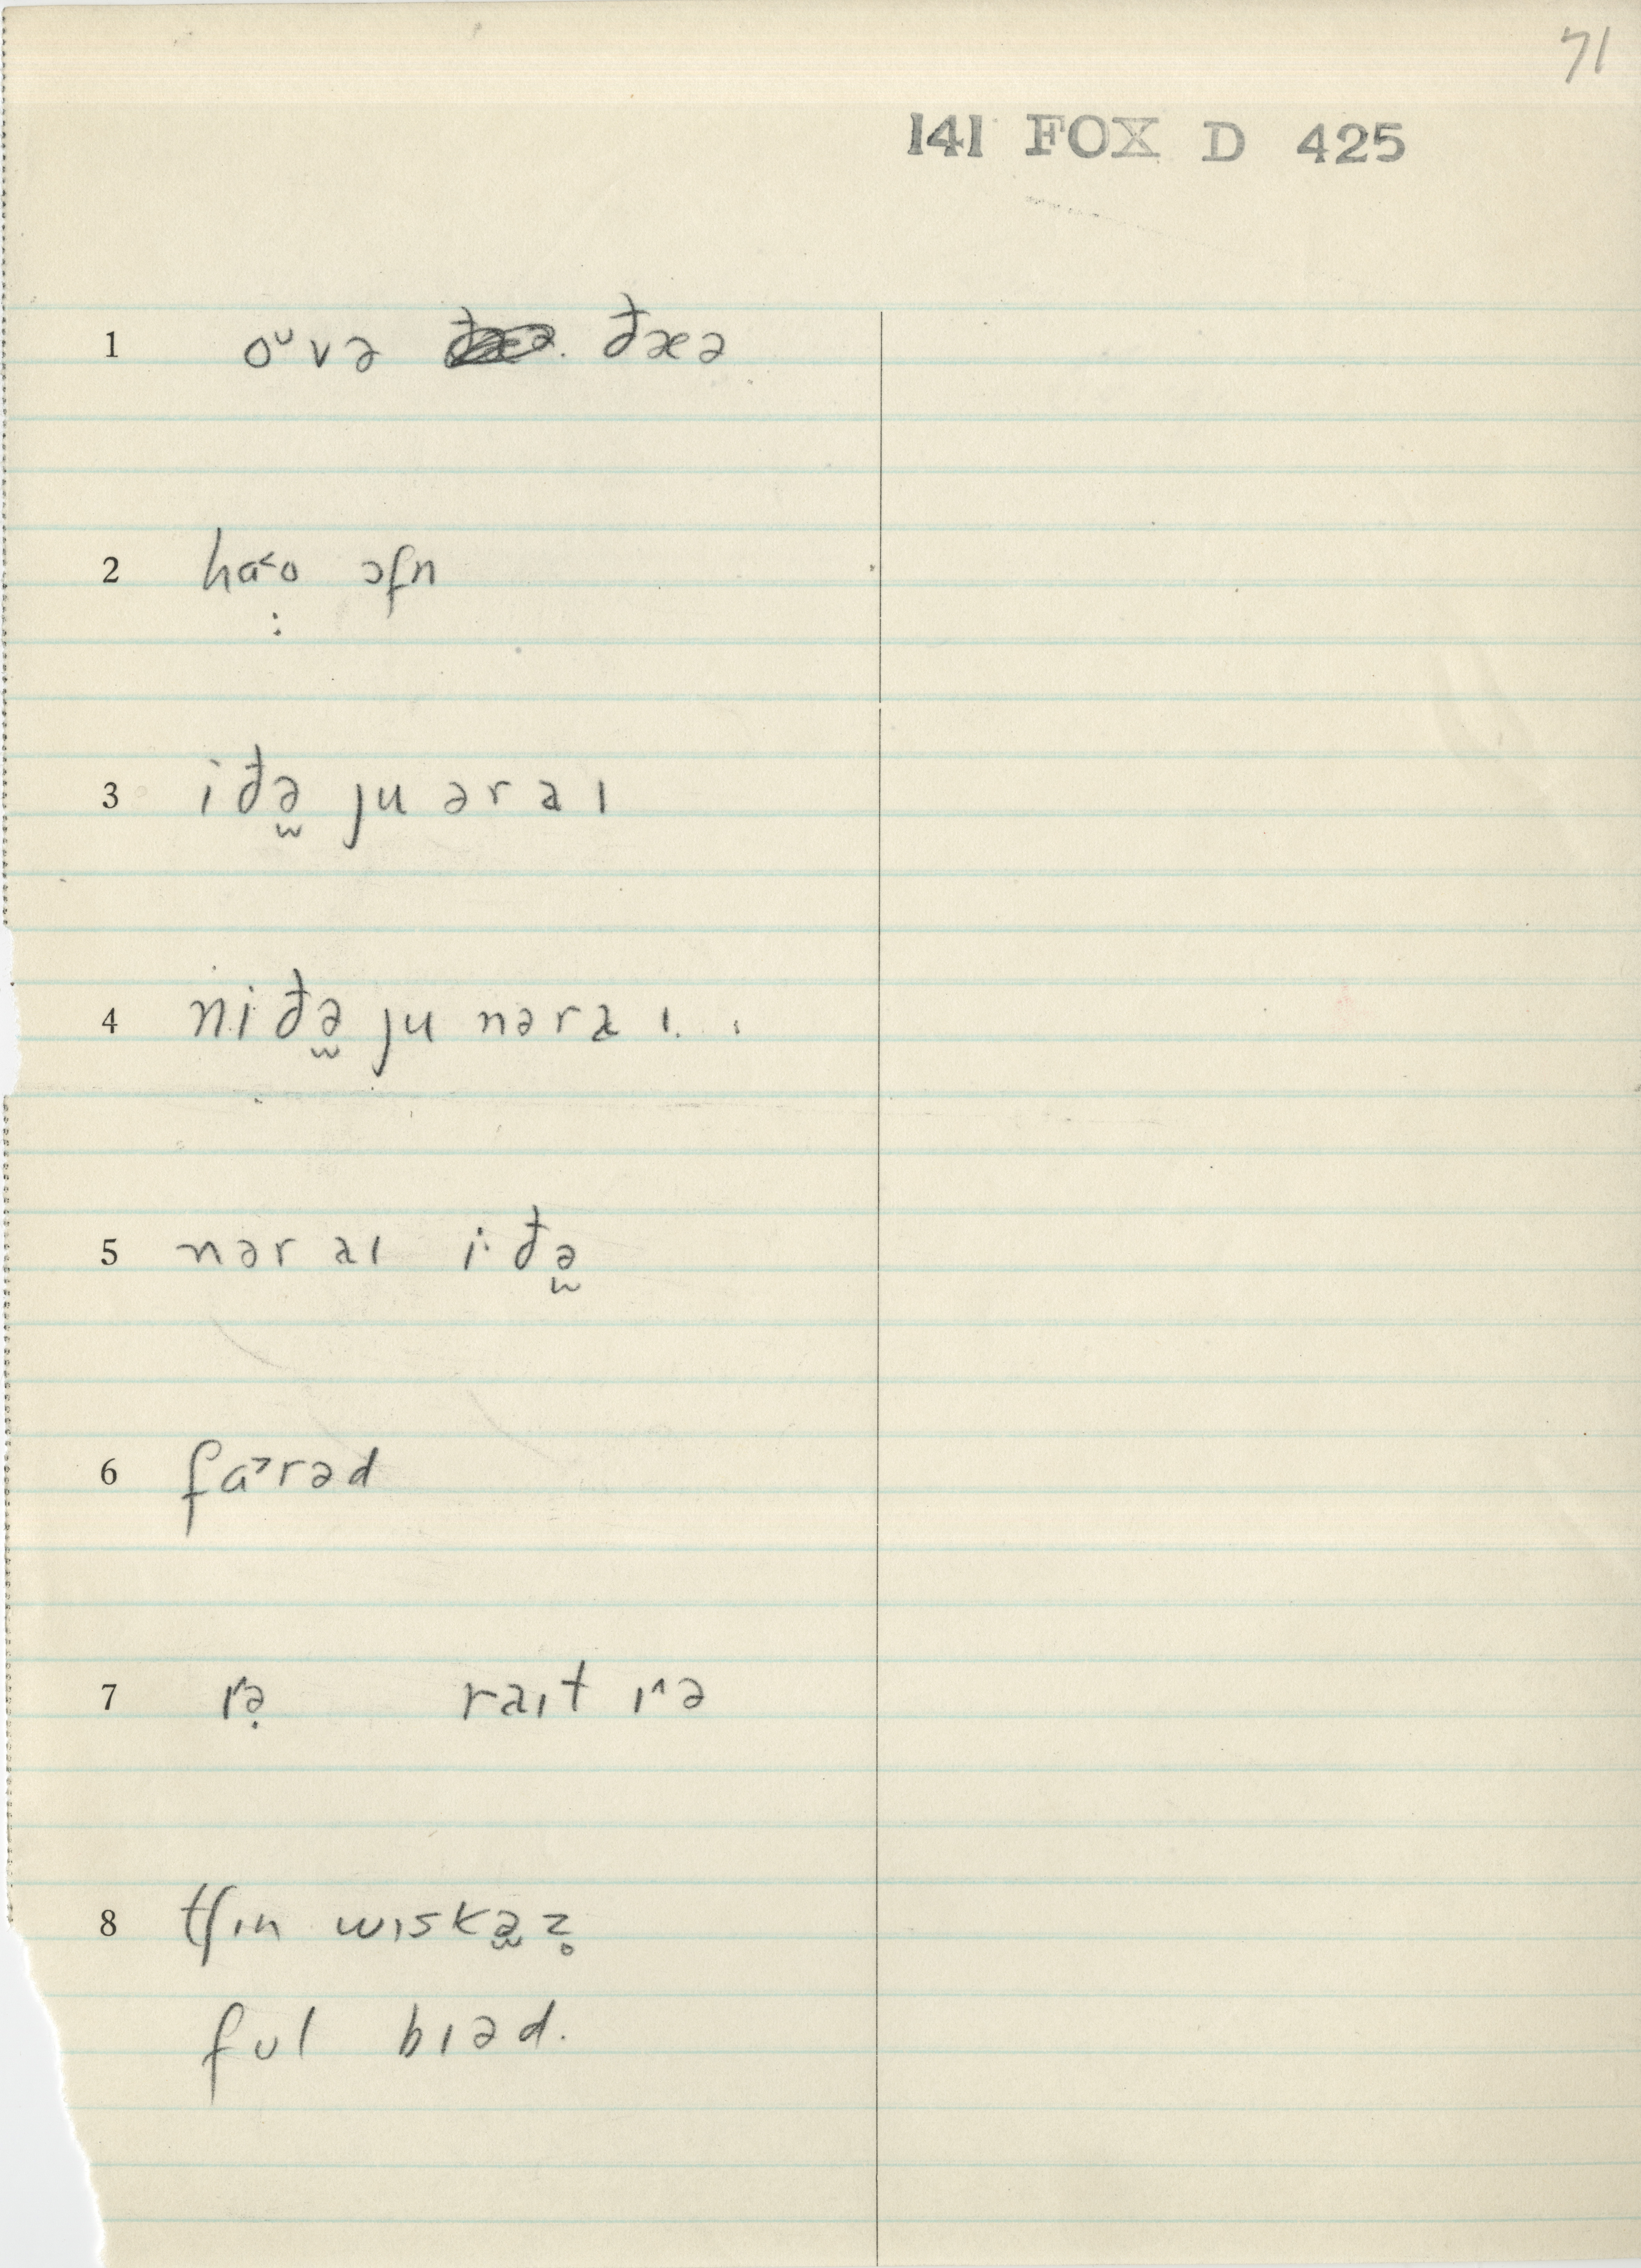 71
141 FOX D 425
1 oᴜvə ðæə
2 ha˂o ɔfn
3 iðə̬ ju əraɪ
4 niðə̬ ju nəraɪ.
5 nəraɪ i·ðə̬
6 fa˃rəd
7 ɪ˄ə̣ raɪt ɪ˄ə
8 tʃɪn wɪskə̬z̥
fʊl bɪəd.